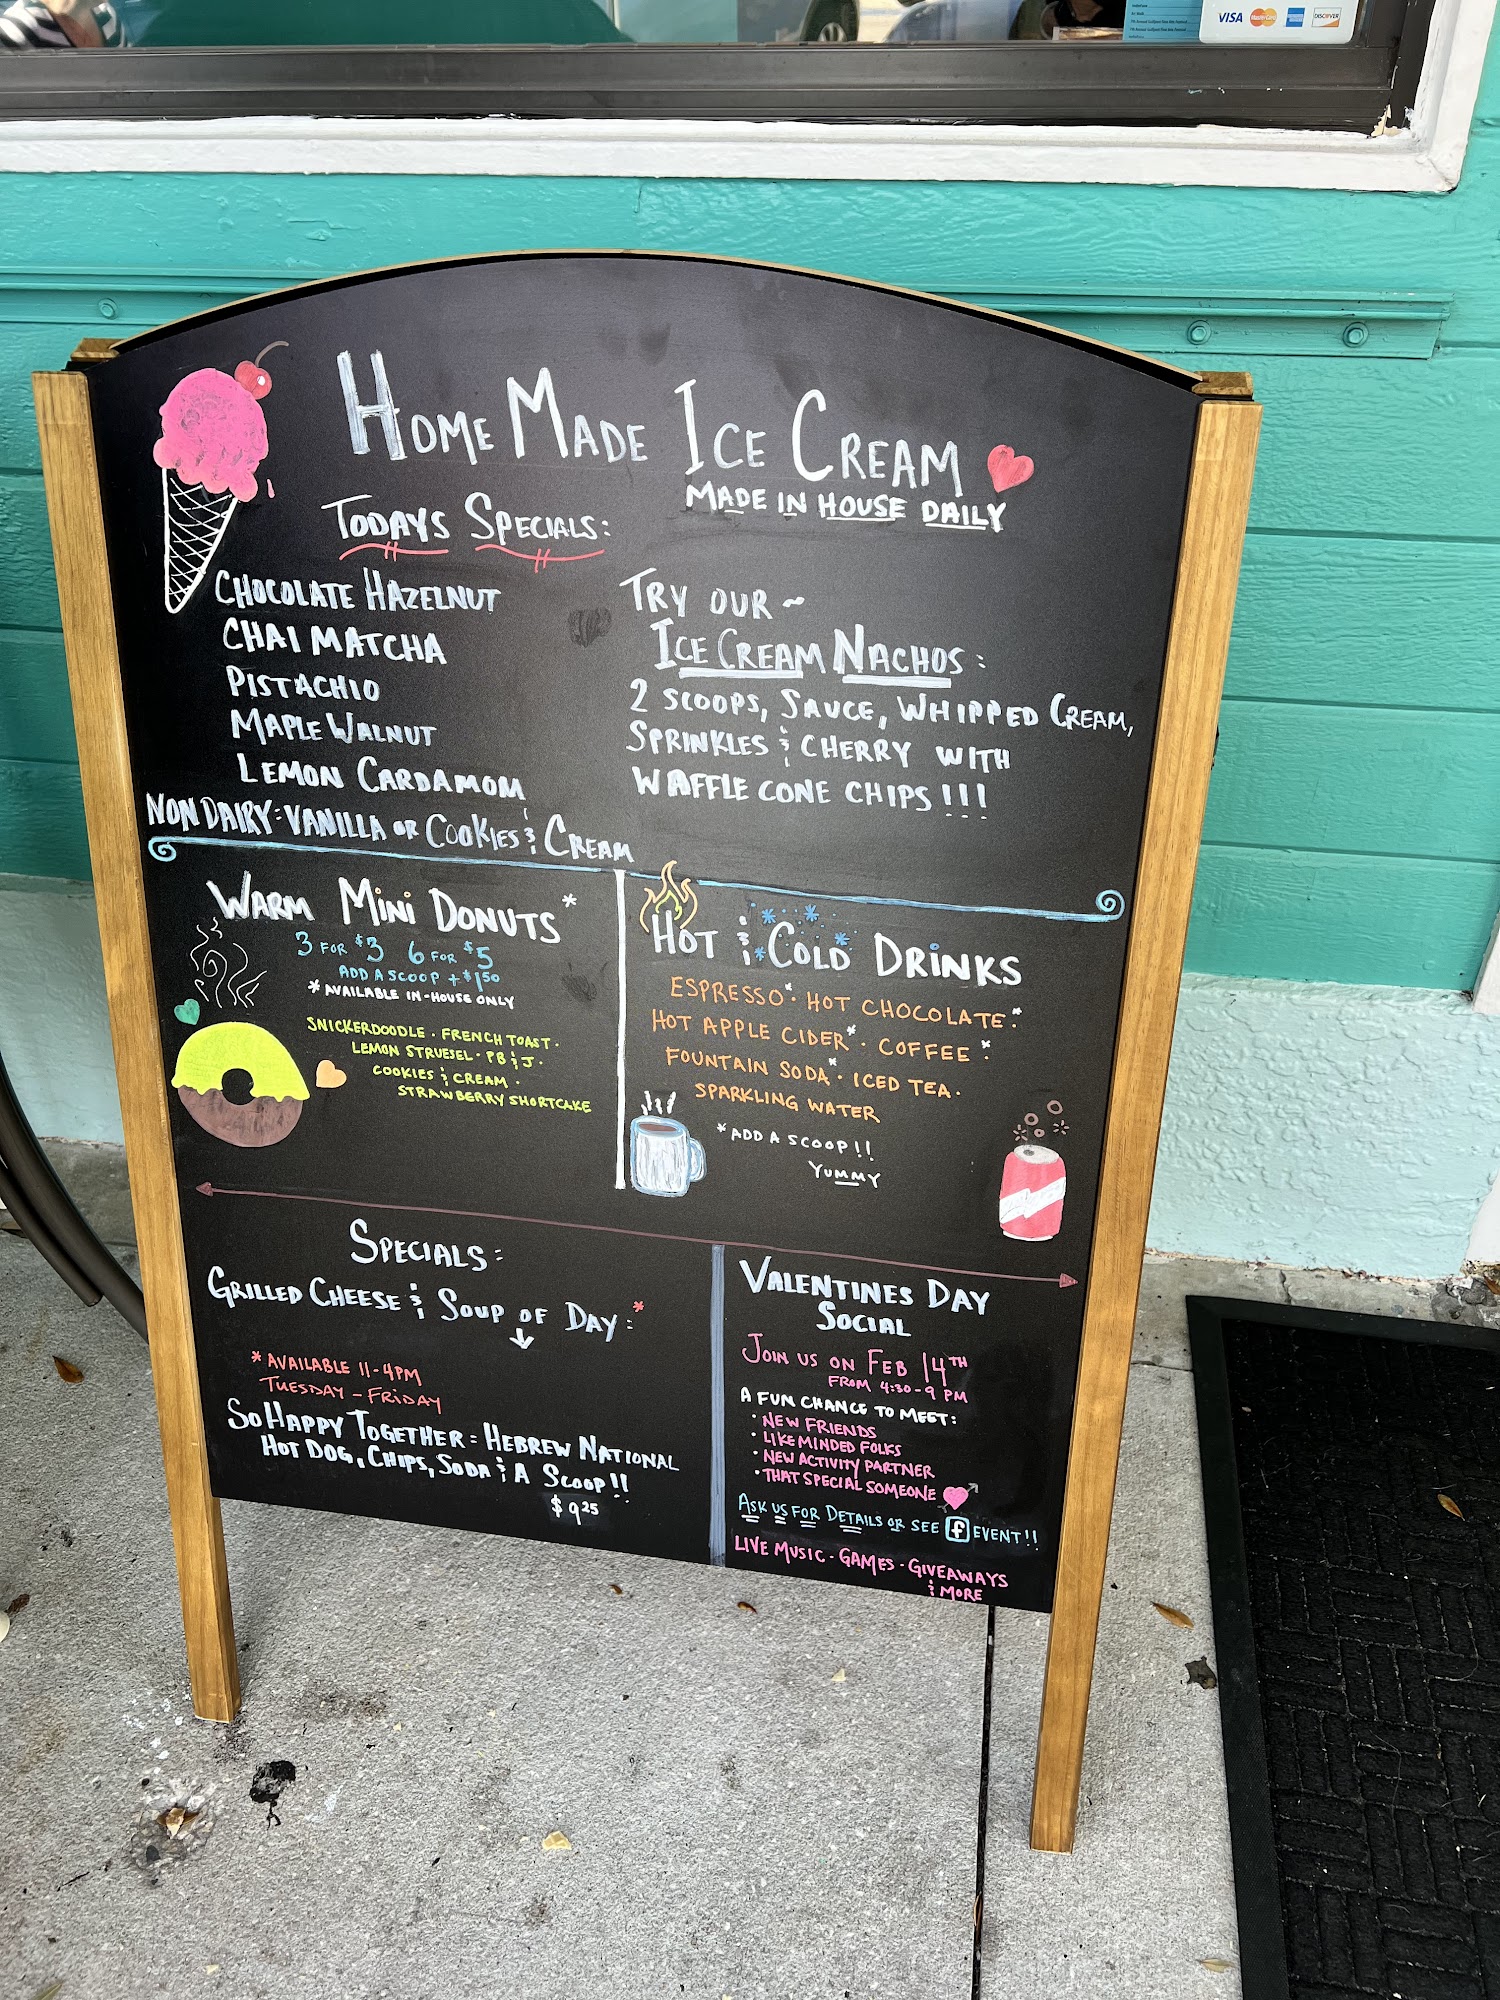 VISA MasterCard DISCOVER
HOME MADE ICE CREAM
MADE IN HOUSE DAILY
TODAYS SPECIALS:
CHOCOLATE HAZELNUT
CHAI MATCHA
PISTACHIO
MAPLE WALNUT
LEMON CARDAMOM
NON DAIRY: VANILLA OR COOKIES & CREAM
TRY OUR ~
ICE CREAM NACHOS:
2 SCOOPS, SAUCE, WHIPPED CREAM,
SPRINKLES & CHERRY WITH
WAFFLE CONE CHIPS!!!
WARM MINI DONUTS*
3 FOR $3 6 FOR $5
ADD A SCOOP + $1.50
* AVAILABLE IN-HOUSE ONLY
SNICKERDOODLE · FRENCH TOAST ·
LEMON STRUESEL · PB & J ·
COOKIES & CREAM ·
STRAWBERRY SHORTCAKE
HOT & COLD DRINKS
ESPRESSO* · HOT CHOCOLATE* ·
HOT APPLE CIDER* · COFFEE* ·
FOUNTAIN SODA* · ICED TEA ·
SPARKLING WATER
* ADD A SCOOP!!
YUMMY
SPECIALS:
GRILLED CHEESE & SOUP OF DAY:*
* AVAILABLE 11-4PM
TUESDAY - FRIDAY
SO HAPPY TOGETHER: HEBREW NATIONAL
HOT DOG, CHIPS, SODA & A SCOOP!!
$9.25
VALENTINES DAY
SOCIAL
JOIN US ON FEB 14TH
FROM 4:30-9 PM
A FUN CHANCE TO MEET:
· NEW FRIENDS
· LIKEMINDED FOLKS
· NEW ACTIVITY PARTNER
· THAT SPECIAL SOMEONE
ASK US FOR DETAILS OR SEE f EVENT!!
LIVE MUSIC · GAMES · GIVEAWAYS
& MORE